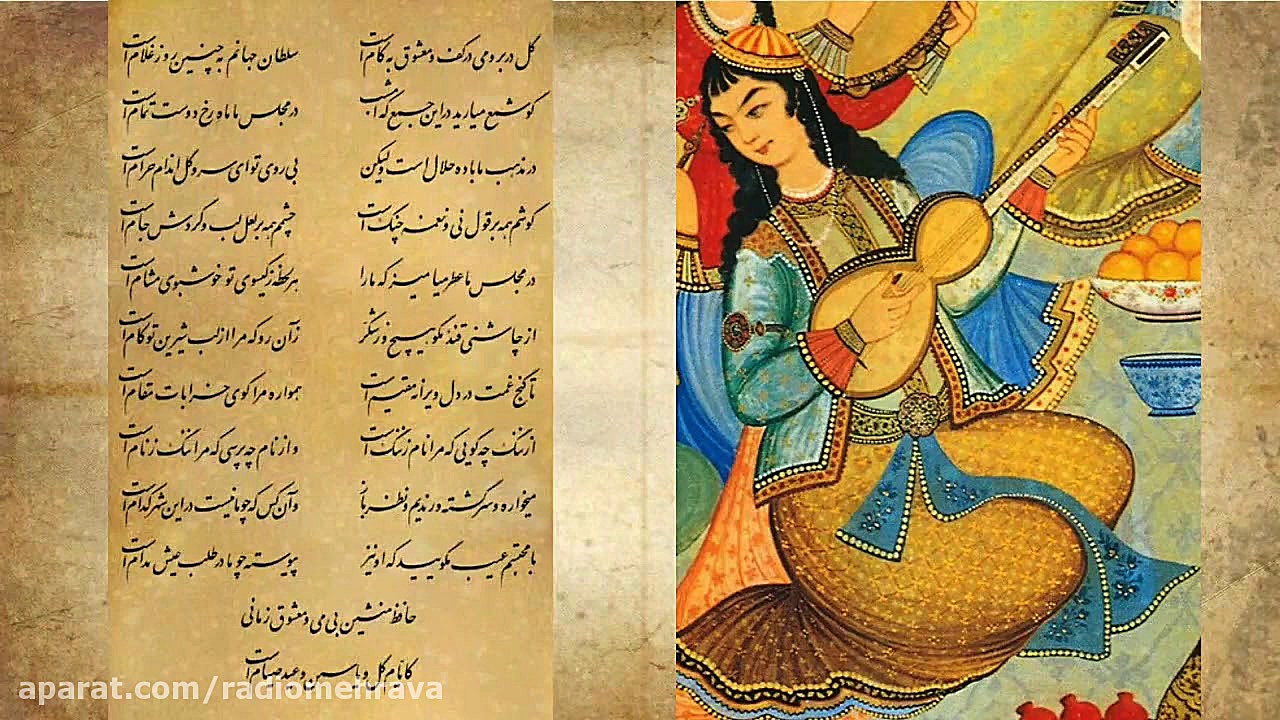 گل در بر و می در کف و معشوق به کام است سلطان جهانم به چنین روز غلام است
گو شمع میارید در این جمع که امشب در مجلس ما ماه رخ دوست تمام است
در مذهب ما باده حلال است ولیکن بی روی تو ای سرو گل اندام حرام است
گوشم همه بر قول نی و نغمه چنگ است چشمم همه بر لعل لب و گردش جام است
در مجلس ما عطر میامیز که ما را هر لحظه ز گیسوی تو خوشبوی مشام است
از چاشنی قند مگو هیچ و ز شکر زآن رو که مرا از لب شیرین تو کام است
تا گنج غمت در دل ویرانه مقیم است همواره مرا کوی خرابات مقام است
از ننگ چه گویی که مرا نام ز ننگ است و از نام چه پرسی که مرا ننگ ز نام است
میخواره و سرگشته و رندیم و نظرباز وآن کس که چو ما نیست در این شهر کدام است
با محتسبم عیب مگویید که او نیز پیوسته چو ما در طلب عیش مدام است
حافظ منشین بی می و معشوق زمانی
کایام گل و یاسمن و عید صیام است
aparat.com/radiomehrava